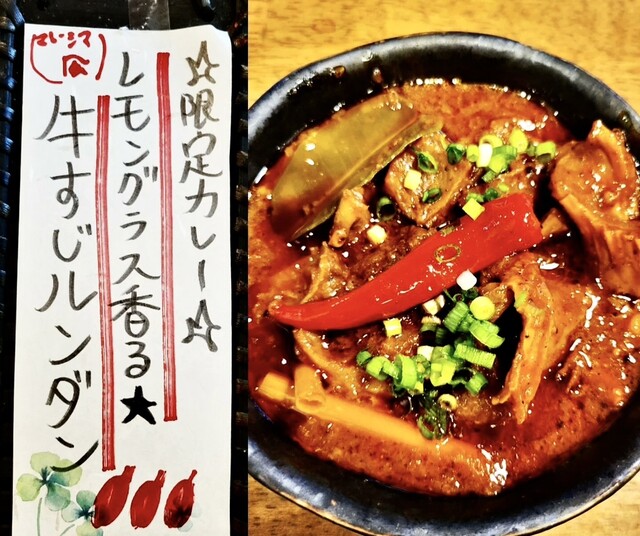 ☆限定カレー☆
レモングラス香る★
牛すじルンダン